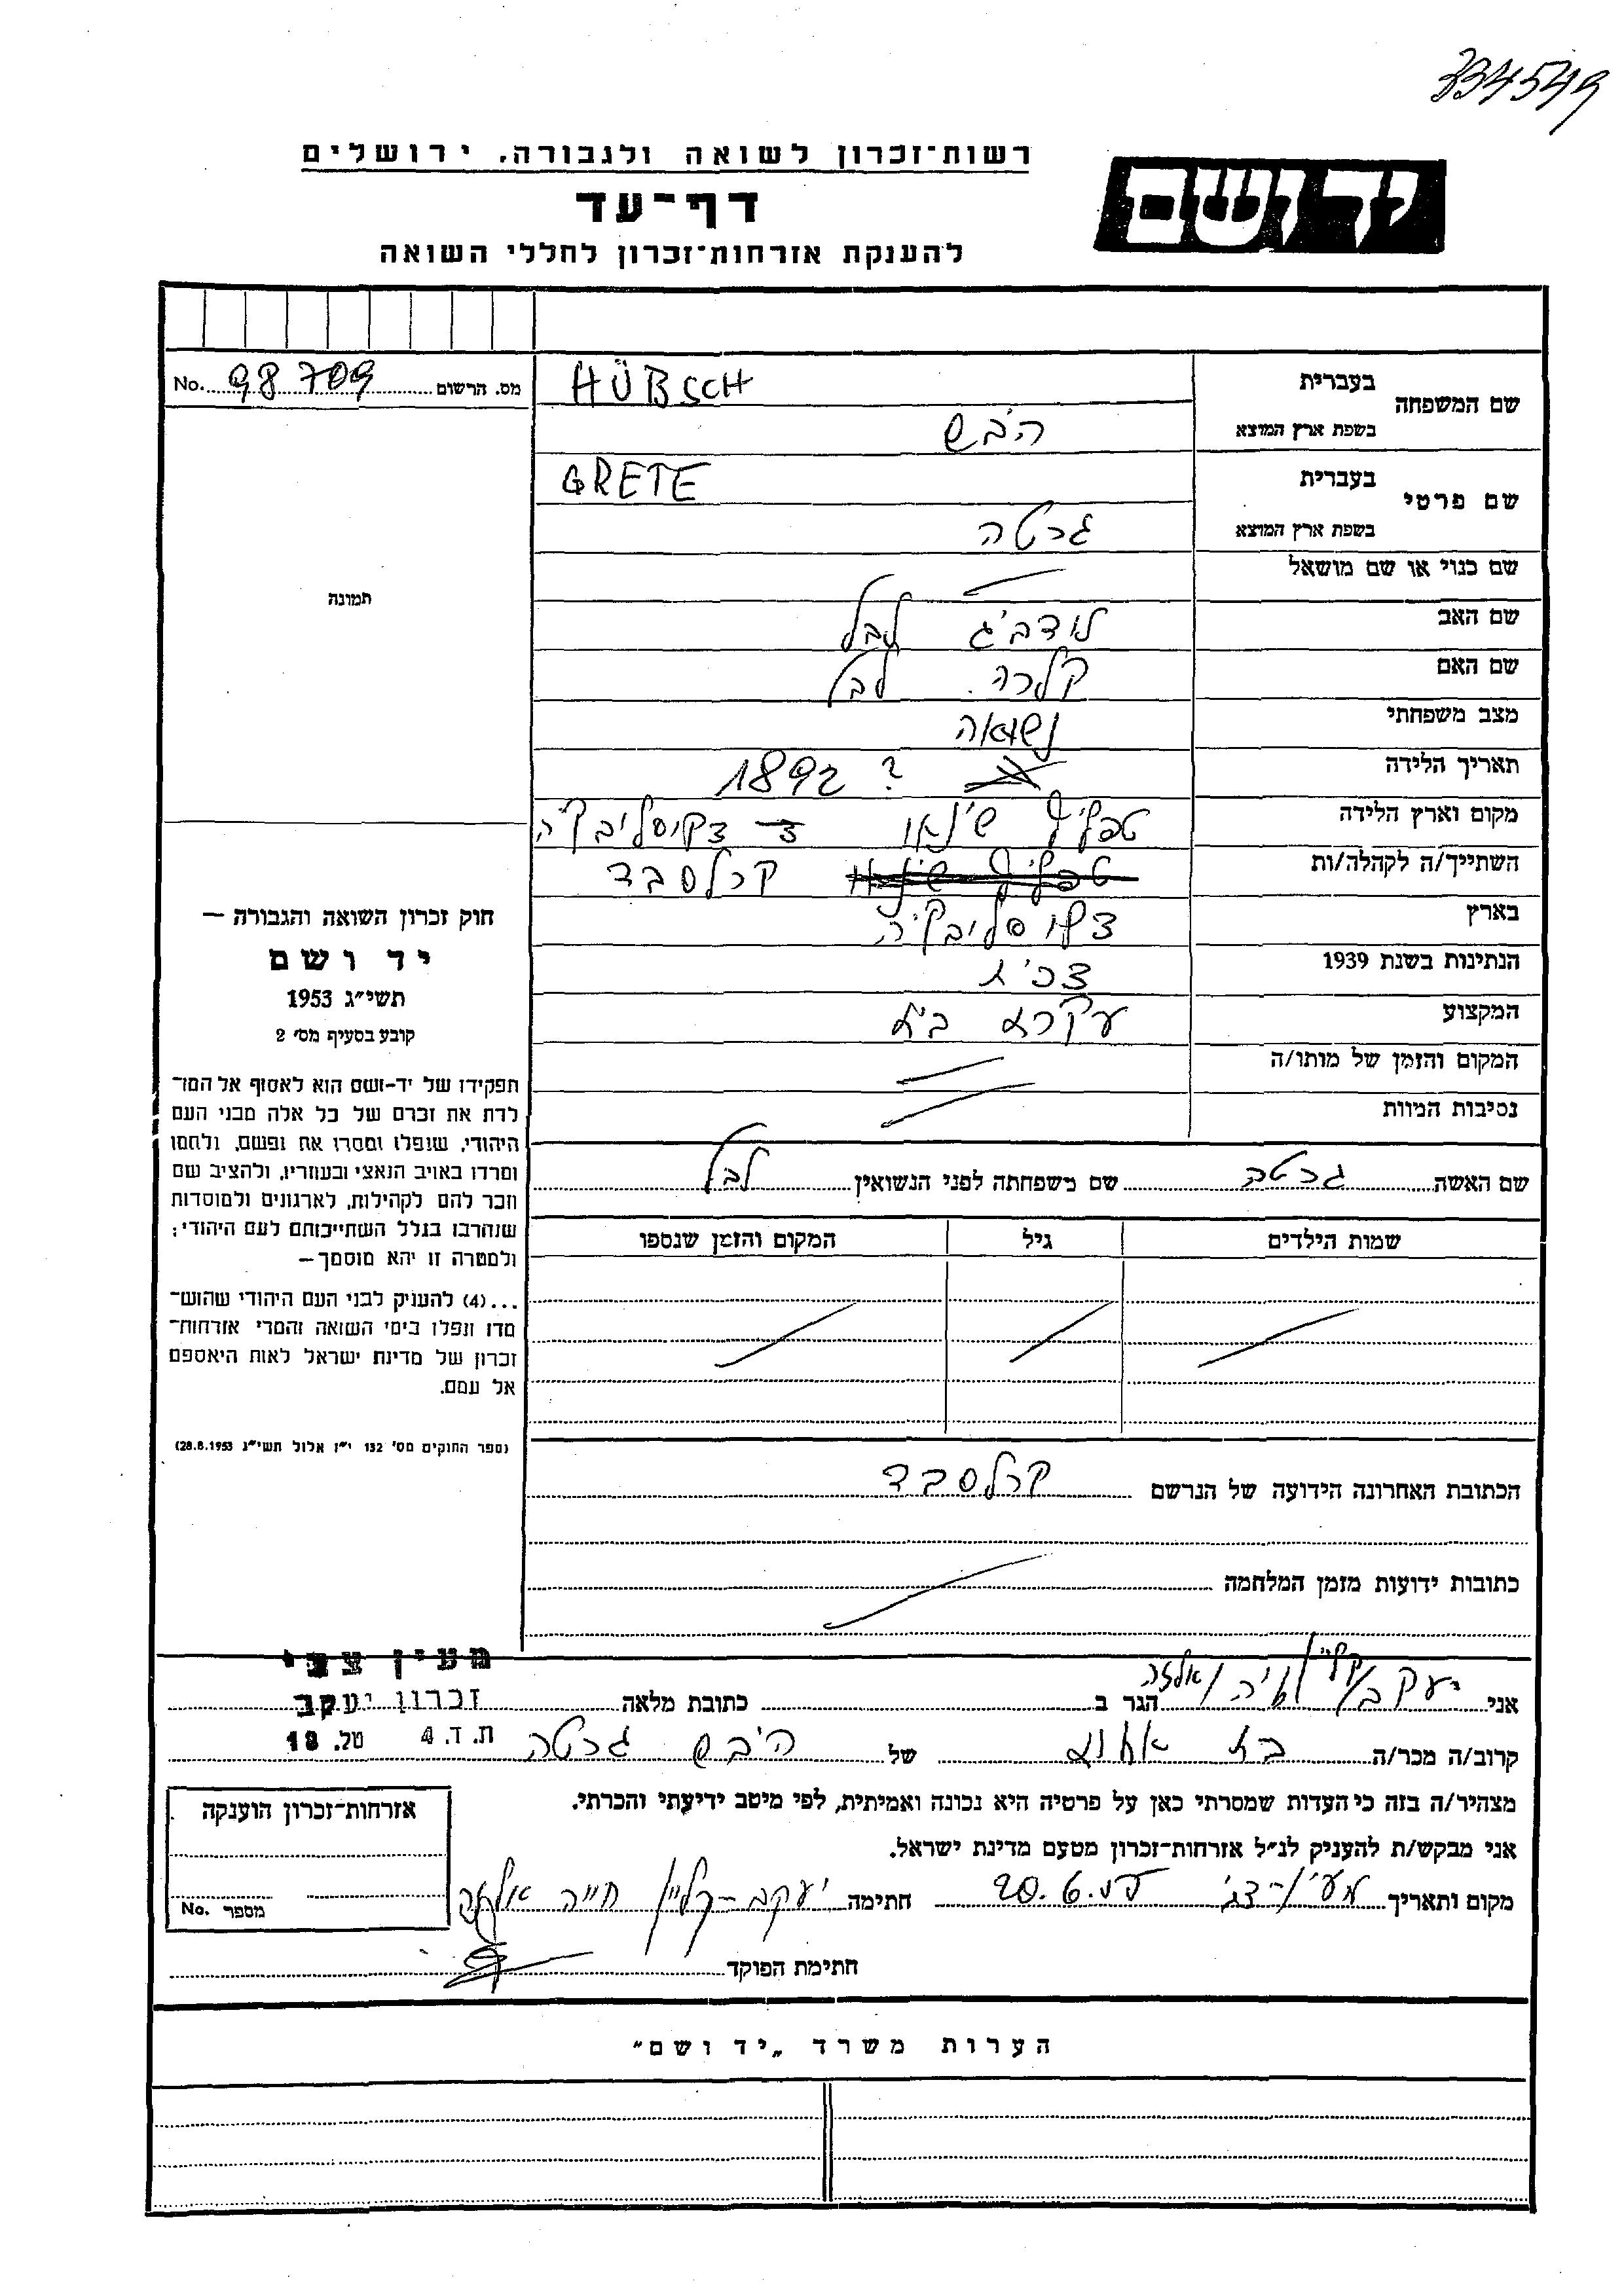 334549
רשות־זכרון לשואה ולגבורה, ירושלים
יד ושם
דף־עד
להענקת אזרחות־זכרון לחללי השואה
מס. הרשום 98709 No.
שם המשפחה בעברית HÜBSCH
בשפת ארץ המוצא היבש
שם פרטי בעברית GRETE
בשפת ארץ המוצא גרטה
שם כנוי או שם מושאל
שם האב לודביג לבל
שם האם קלרה לבל
מצב משפחתי נשואה
תאריך הלידה ? 1892
מקום וארץ הלידה טפליץ שינאו
השתייך/ה לקהלה/ות קרלסבד
בארץ
הנתינות בשנת 1939 צכית
המקצוע עקרת בית
המקום והזמן של מותו/ה
נסיבות המוות
תמונה
חוק זכרון השואה והגבורה —
יד ושם
תשי״ג 1953
קובע בסעיף מס׳ 2
תפקידו של יד-ושם הוא לאסוף אל המו־
לדת את זכרם של כל אלה מבני העם
היהודי, שנפלו ומסרו את נפשם, ולחמו
ומרדו באויב הנאצי ובעוזריו, ולהציב שם
וזכר להם לקהילות, לארגונים ולמוסדות
שנחרבו בגלל השתייכותם לעם היהודי;
ולמטרה זו יהא מוסמך—
...(4) להעניק לבני העם היהודי שהוש־
מדו ונפלו בימי השואה והמרי אזרחות־
זכרון של מדינת ישראל לאות היאספם
אל עמם.
(ספר החוקים מס׳ 132 י״ז אלול תשי״ג 28.8.1953)
שם האשה גרטה שם משפחתה לפני הנשואין לבל
שמות הילדים גיל המקום והזמן שנספו
הכתובת האחרונה הידועה של הנרשם קרלסבד
כתובות ידועות מזמן המלחמה
מעין צבי
אני יעקב קליין חיה אלזה הגר ב כתובת מלאה זכרון יעקב
ת. ד. 4 טל. 18
קרוב/ה מכר/ה בת אחות של היבש גרטה
מצהיר/ה בזה כי העדות שמסרתי כאן על פרטיה היא נכונה ואמיתית, לפי מיטב ידיעתי והכרתי.
אני מבקש/ת להעניק לנ״ל אזרחות־זכרון מטעם מדינת ישראל.
מקום ותאריך מעין-צבי חתימה יעקב-קליין חייה אלזה
חתימת הפוקד
אזרחות־זכרון הוענקה
מספר No.
הערות משרד „יד ושם״